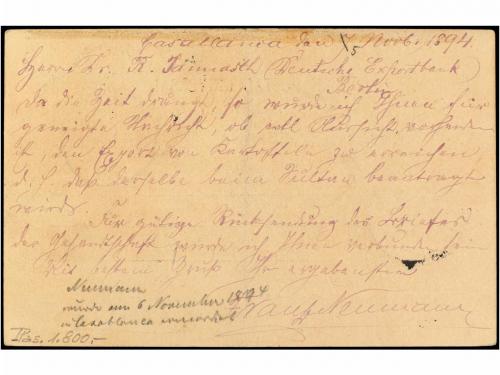 Casablanca den 5 Novbr 1894.
Herrn Dr. R. (Deutsche Exportbank)
Berlin
Da die Zeit drängt, so würde ich Ihnen für
geneigte Nachricht, ob evtl Aussicht vorhanden
ist, den Export von Kartoffeln zu erreichen,
d. h. daß derselbe beim Sultan beantragt
wird.
Für gütige Rücksendung des Briefes
der Gesandtschaft würde ich Ihnen verbunden sein
Mit bestem Gruß Ihr ergebenster
Franz Neumann
Neumann
wurde am 6 November 1894
in Casablanca ermordet
Pts. 1.800,-